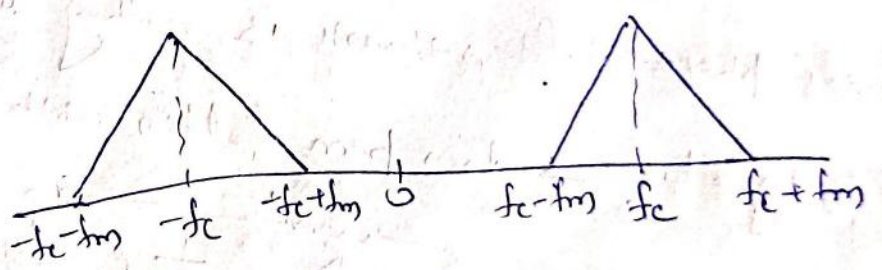 -fc-fm -fc -fc+fm 0 fc-fm fc fc+fm